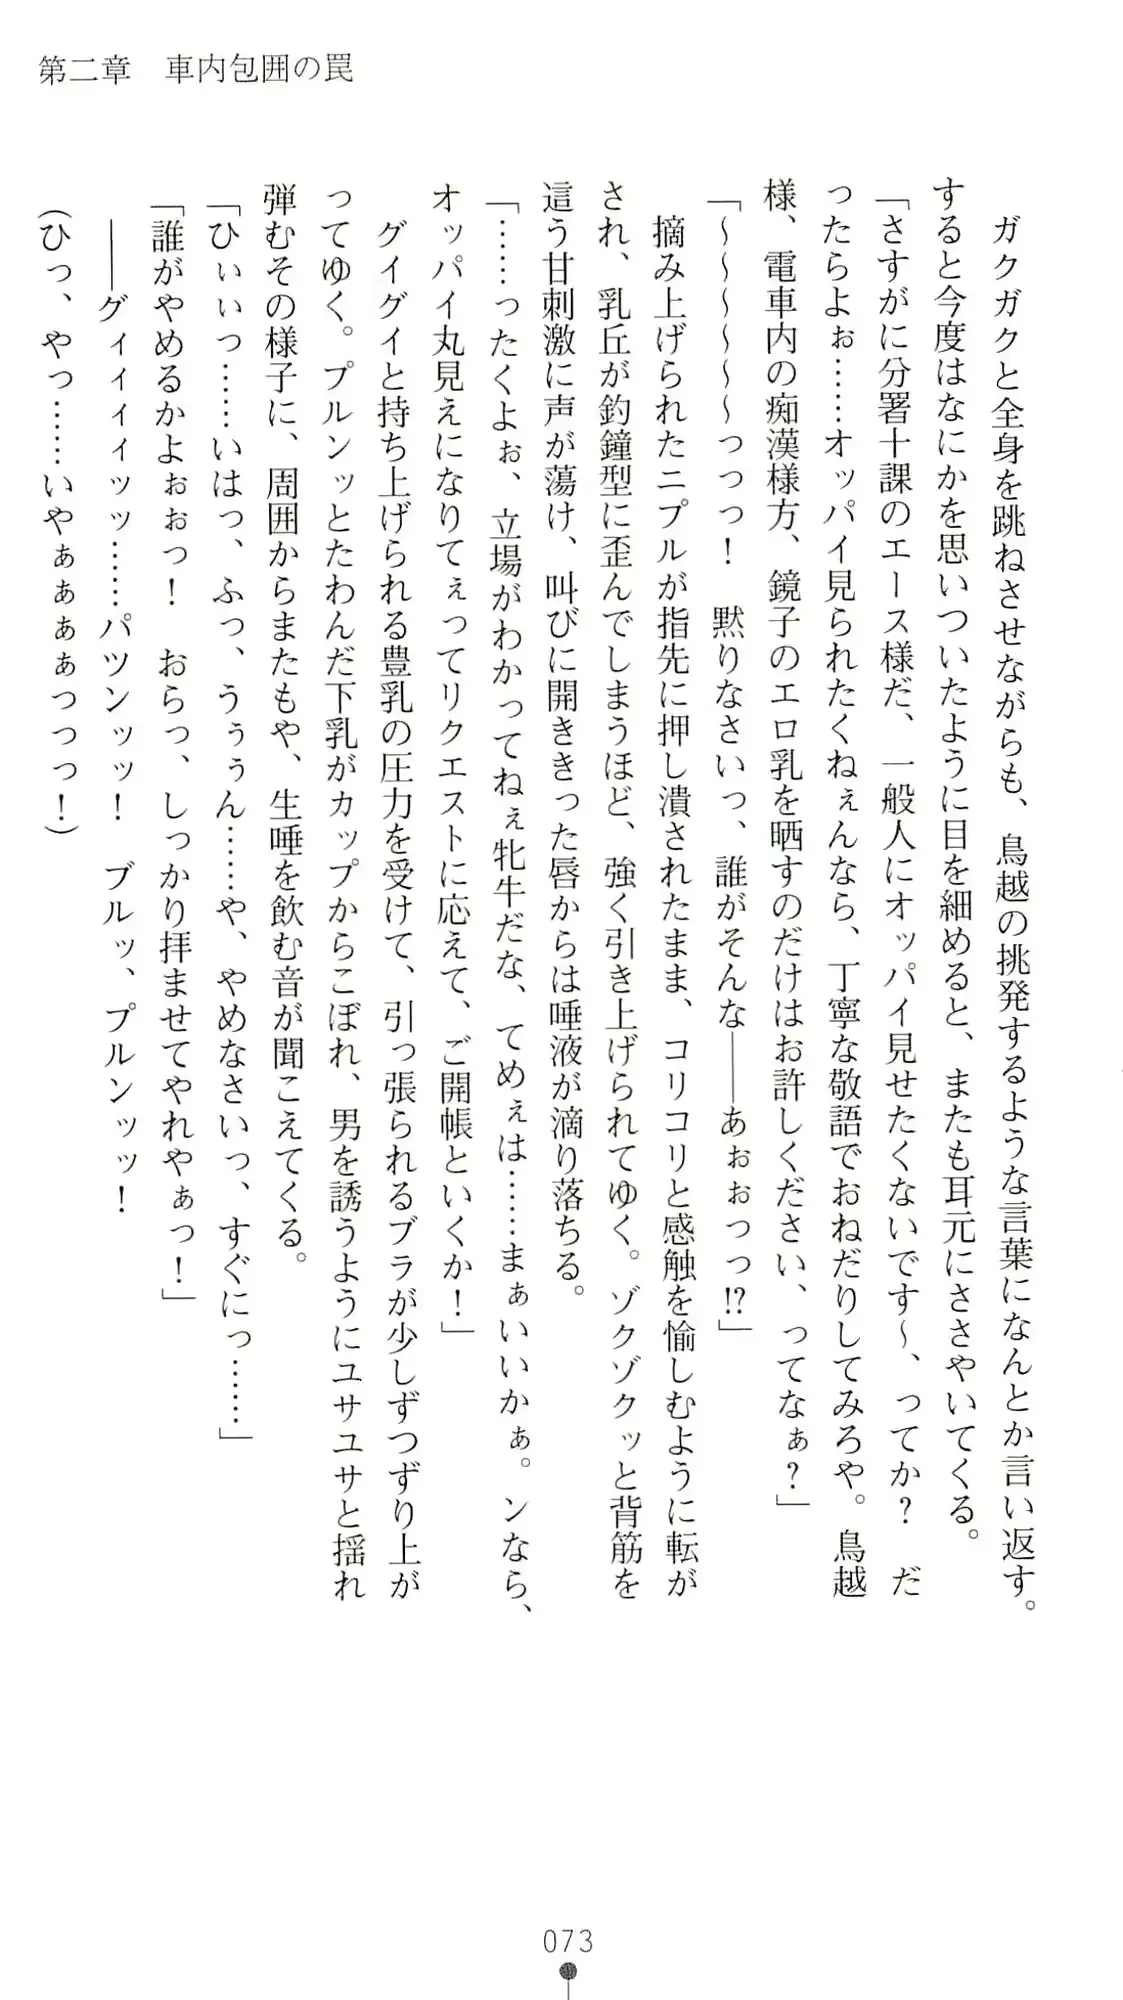 第二章　車内包囲の罠
　ガクガクと全身を跳ねさせながらも、鳥越の挑発するような言葉になんとか言い返す。
すると今度はなにかを思いついたように目を細めると、またも耳元にささやいてくる。
「さすがに分署十課のエース様だ、一般人にオッパイ見せたくないです～、ってか？　だ
ったらよぉ……オッパイ見られたくねぇんなら、丁寧な敬語でおねだりしてみろや。鳥越
様、電車内の痴漢様方、鏡子のエロ乳を晒すのだけはお許しください、ってなぁ？」
「～～～～～～っっっ！　黙りなさいっ、誰がそんな――あぉぉっっ!?」
　摘み上げられたニプルが指先に押し潰されたまま、コリコリと感触を愉しむように転が
され、乳丘が釣鐘型に歪んでしまうほど、強く引き上げられてゆく。ゾクゾクッと背筋を
這う甘刺激に声が蕩け、叫びに開ききった唇からは唾液が滴り落ちる。
「……ったくよぉ、立場がわかってねぇ牝牛だな、てめぇは……まぁいいかぁ。ンなら、
オッパイ丸見えになりてぇってリクエストに応えて、ご開帳といくか！」
　グイグイと持ち上げられる豊乳の圧力を受けて、引っ張られるブラが少しずつずり上が
ってゆく。プルンッとたわんだ下乳がカップからこぼれ、男を誘うようにユサユサと揺れ
弾むその様子に、周囲からまたもや、生唾を飲む音が聞こえてくる。
「ひぃぃっ……いはっ、ふっ、うぅぅん……や、やめなさいっ、すぐにっ……」
「誰がやめるかよぉぉっ！　おらっ、しっかり拝ませてやれやぁっ！」
　――グィィィィッッ……パツンッッ！　ブルッ、プルンッッ！
（ひっ、やっ……いやぁぁぁぁっっっ！）
073